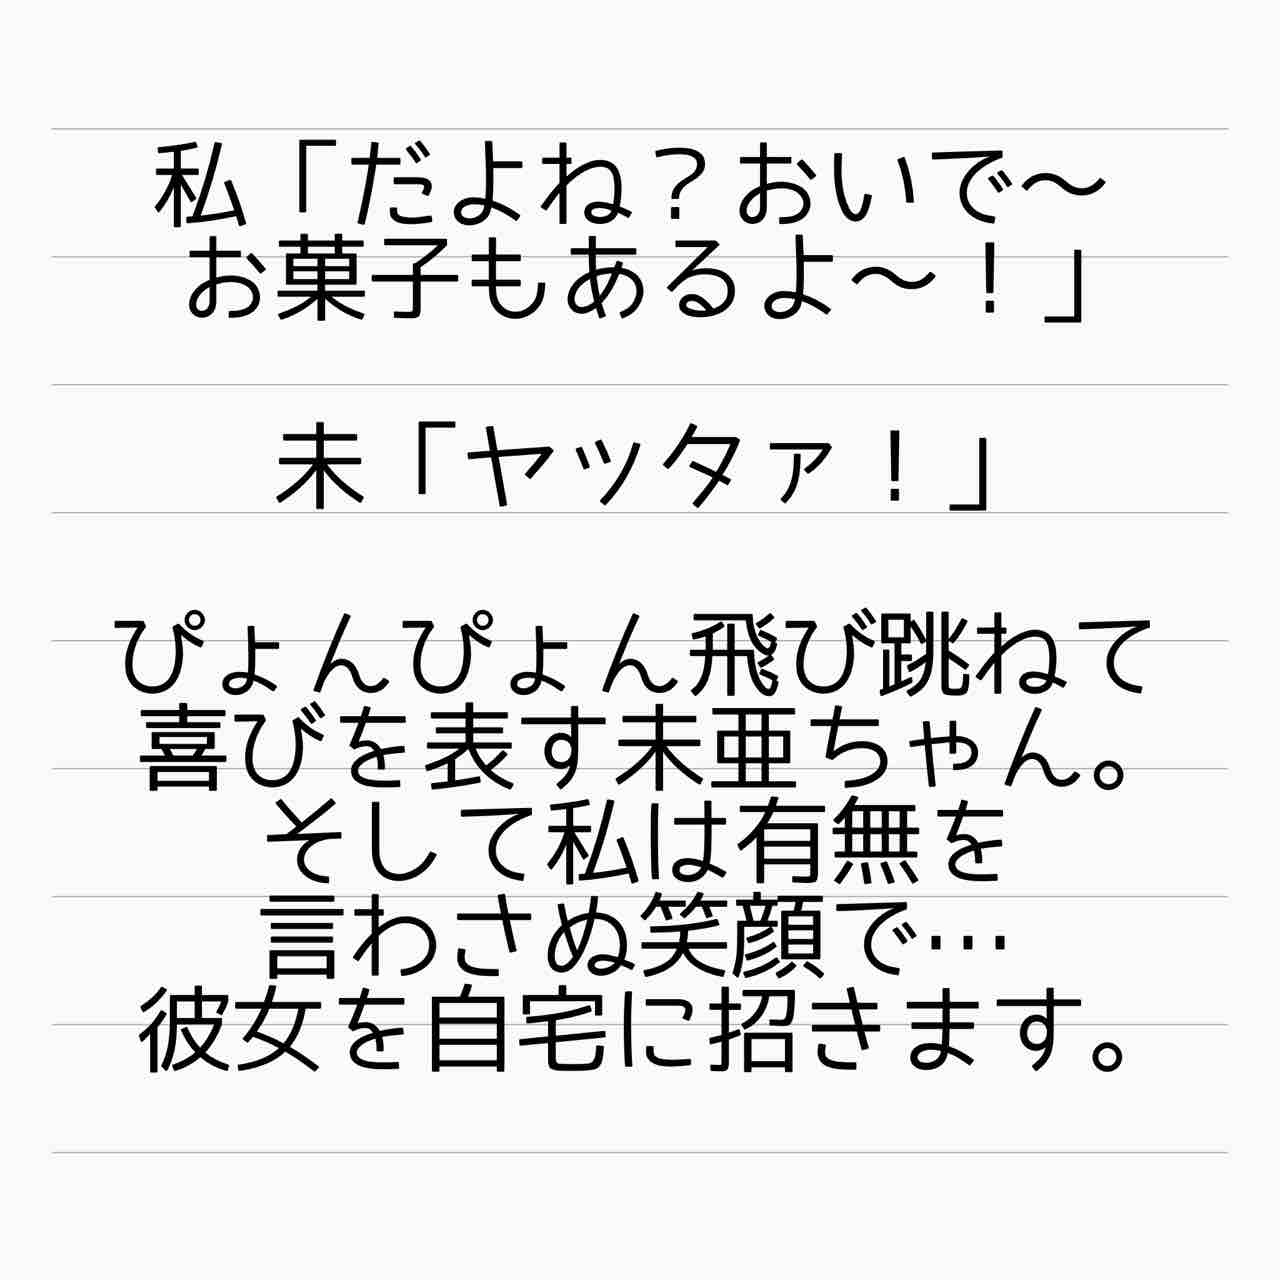 私「だよね？おいで〜
お菓子もあるよ〜！」
未「ヤッタァ！」
ぴょんぴょん飛び跳ねて
喜びを表す未亜ちゃん。
そして私は有無を
言わさぬ笑顔で…
彼女を自宅に招きます。